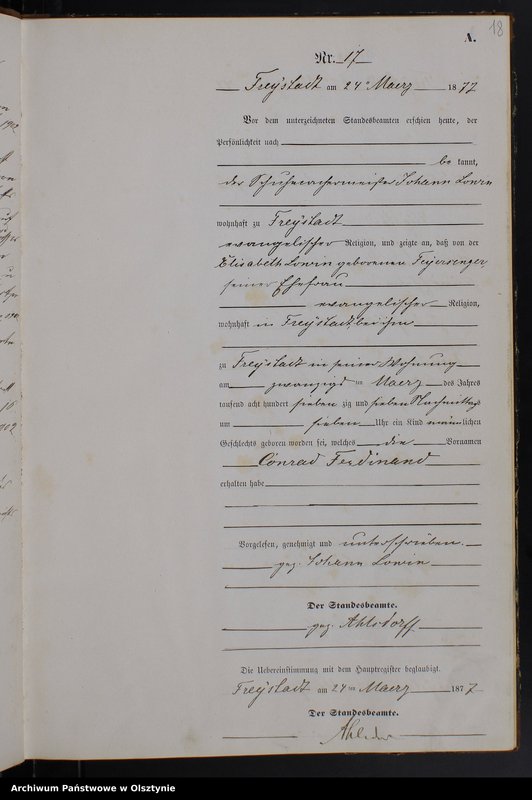 18
A.
Nr. 17
Freystadt am 24ten Maerz 1877
Vor dem unterzeichneten Standesbeamten erschien heute, der
Persönlichkeit nach
be kannt,
der Schuhmachermeister Johann Lowin
wohnhaft zu Freystadt
evangelischer Religion, und zeigte an, daß von der
Elisabeth Lowin geborenen
seiner Ehefrau
evangelischer Religion,
wohnhaft in Freystadt bei ihm
zu Freystadt in seiner Wohnung
am zwanzigsten Maerz des Jahres
tausend acht hundert sieben zig und sieben Nachmittags
um sieben Uhr ein Kind männlichen
Geschlechts geboren worden sei, welches die Vornamen
Conrad Ferdinand
erhalten habe
Vorgelesen, genehmigt und unterschrieben.
gez. Johann Lowin
Der Standesbeamte.
gez. Ahlsdorff
Die Uebereinstimmung mit dem Hauptregister beglaubigt.
Freystadt am 24ten Maerz 1877
Der Standesbeamte.
Archiwum Państwowe w Olsztynie